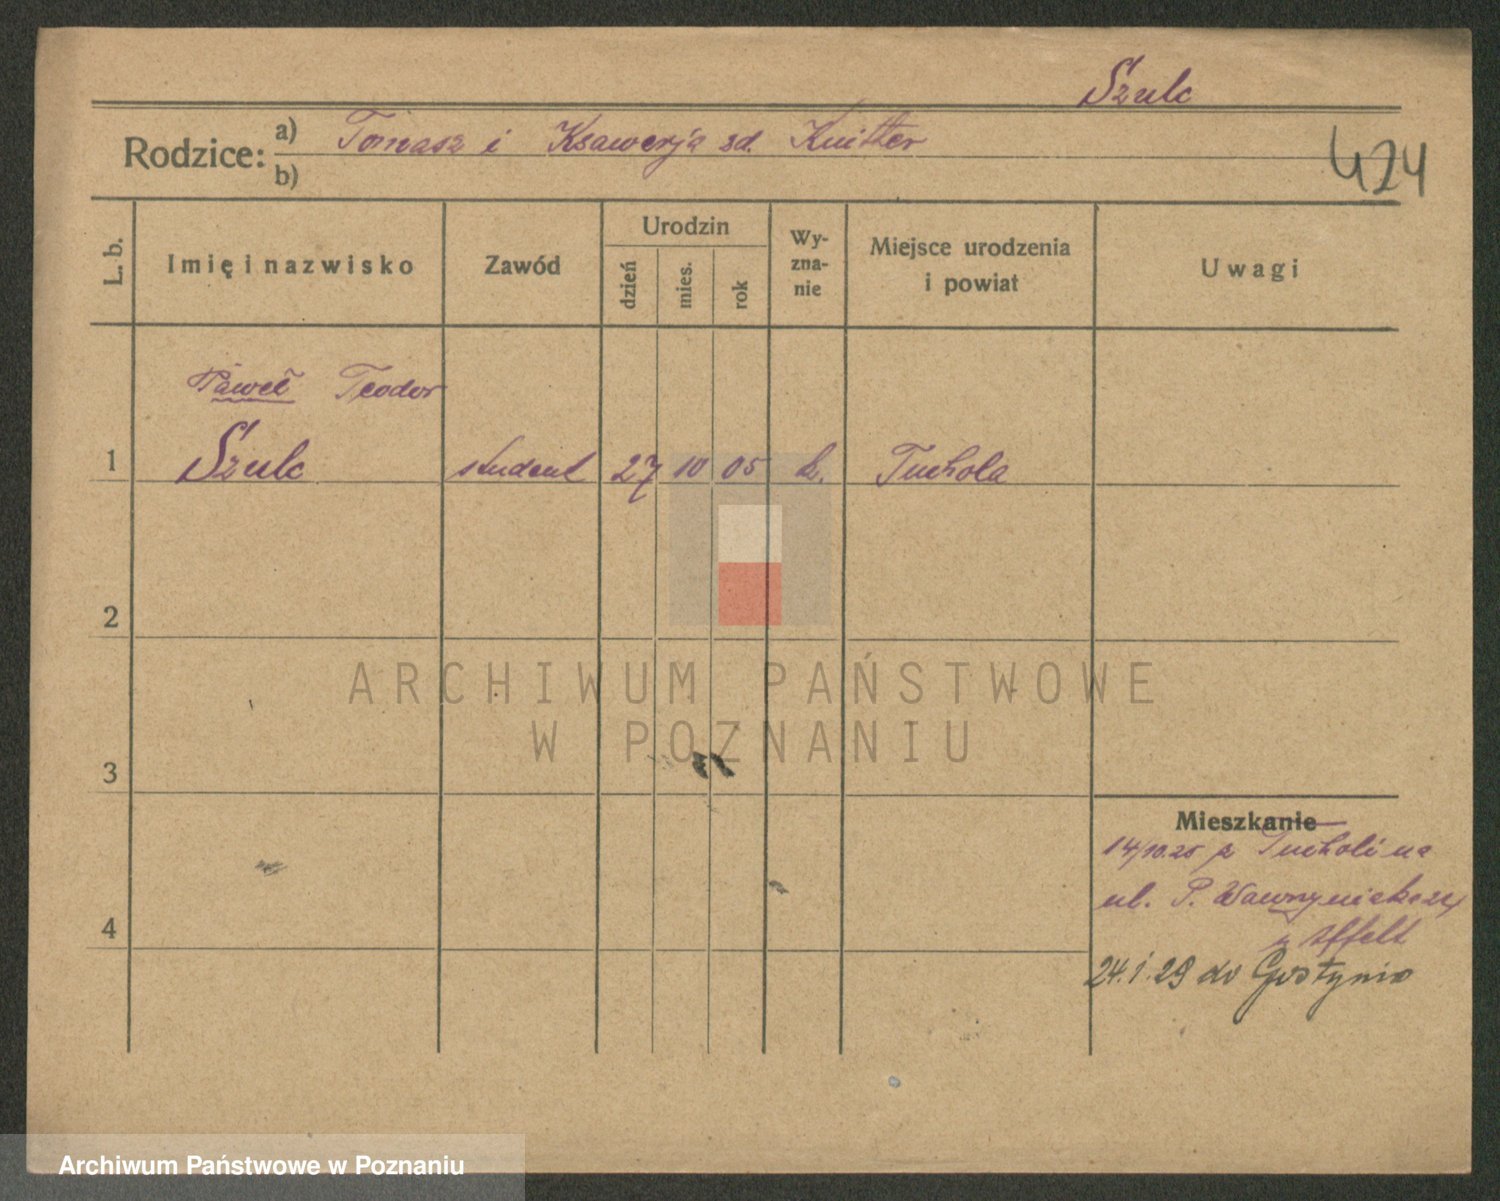 Szulc
Rodzice: a) Tomasz i Ksawerja zd. Knitter
b)
424
L. b.
Imię i nazwisko
Zawód
Urodzin
dzień
mies.
rok
Wy-
zna-
nie
Miejsce urodzenia
i powiat
Uwagi
Paweł Teodor
1 Szulc student 27 10 05 k. Tuchola
2
3
4
Mieszkanie
14/10.25 z Tucholi na
ul. P. Wawrzyniaka
u Affelt
24.1.29 do Gostynia
ARCHIWUM PAŃSTWOWE
W POZNANIU
Archiwum Państwowe w Poznaniu